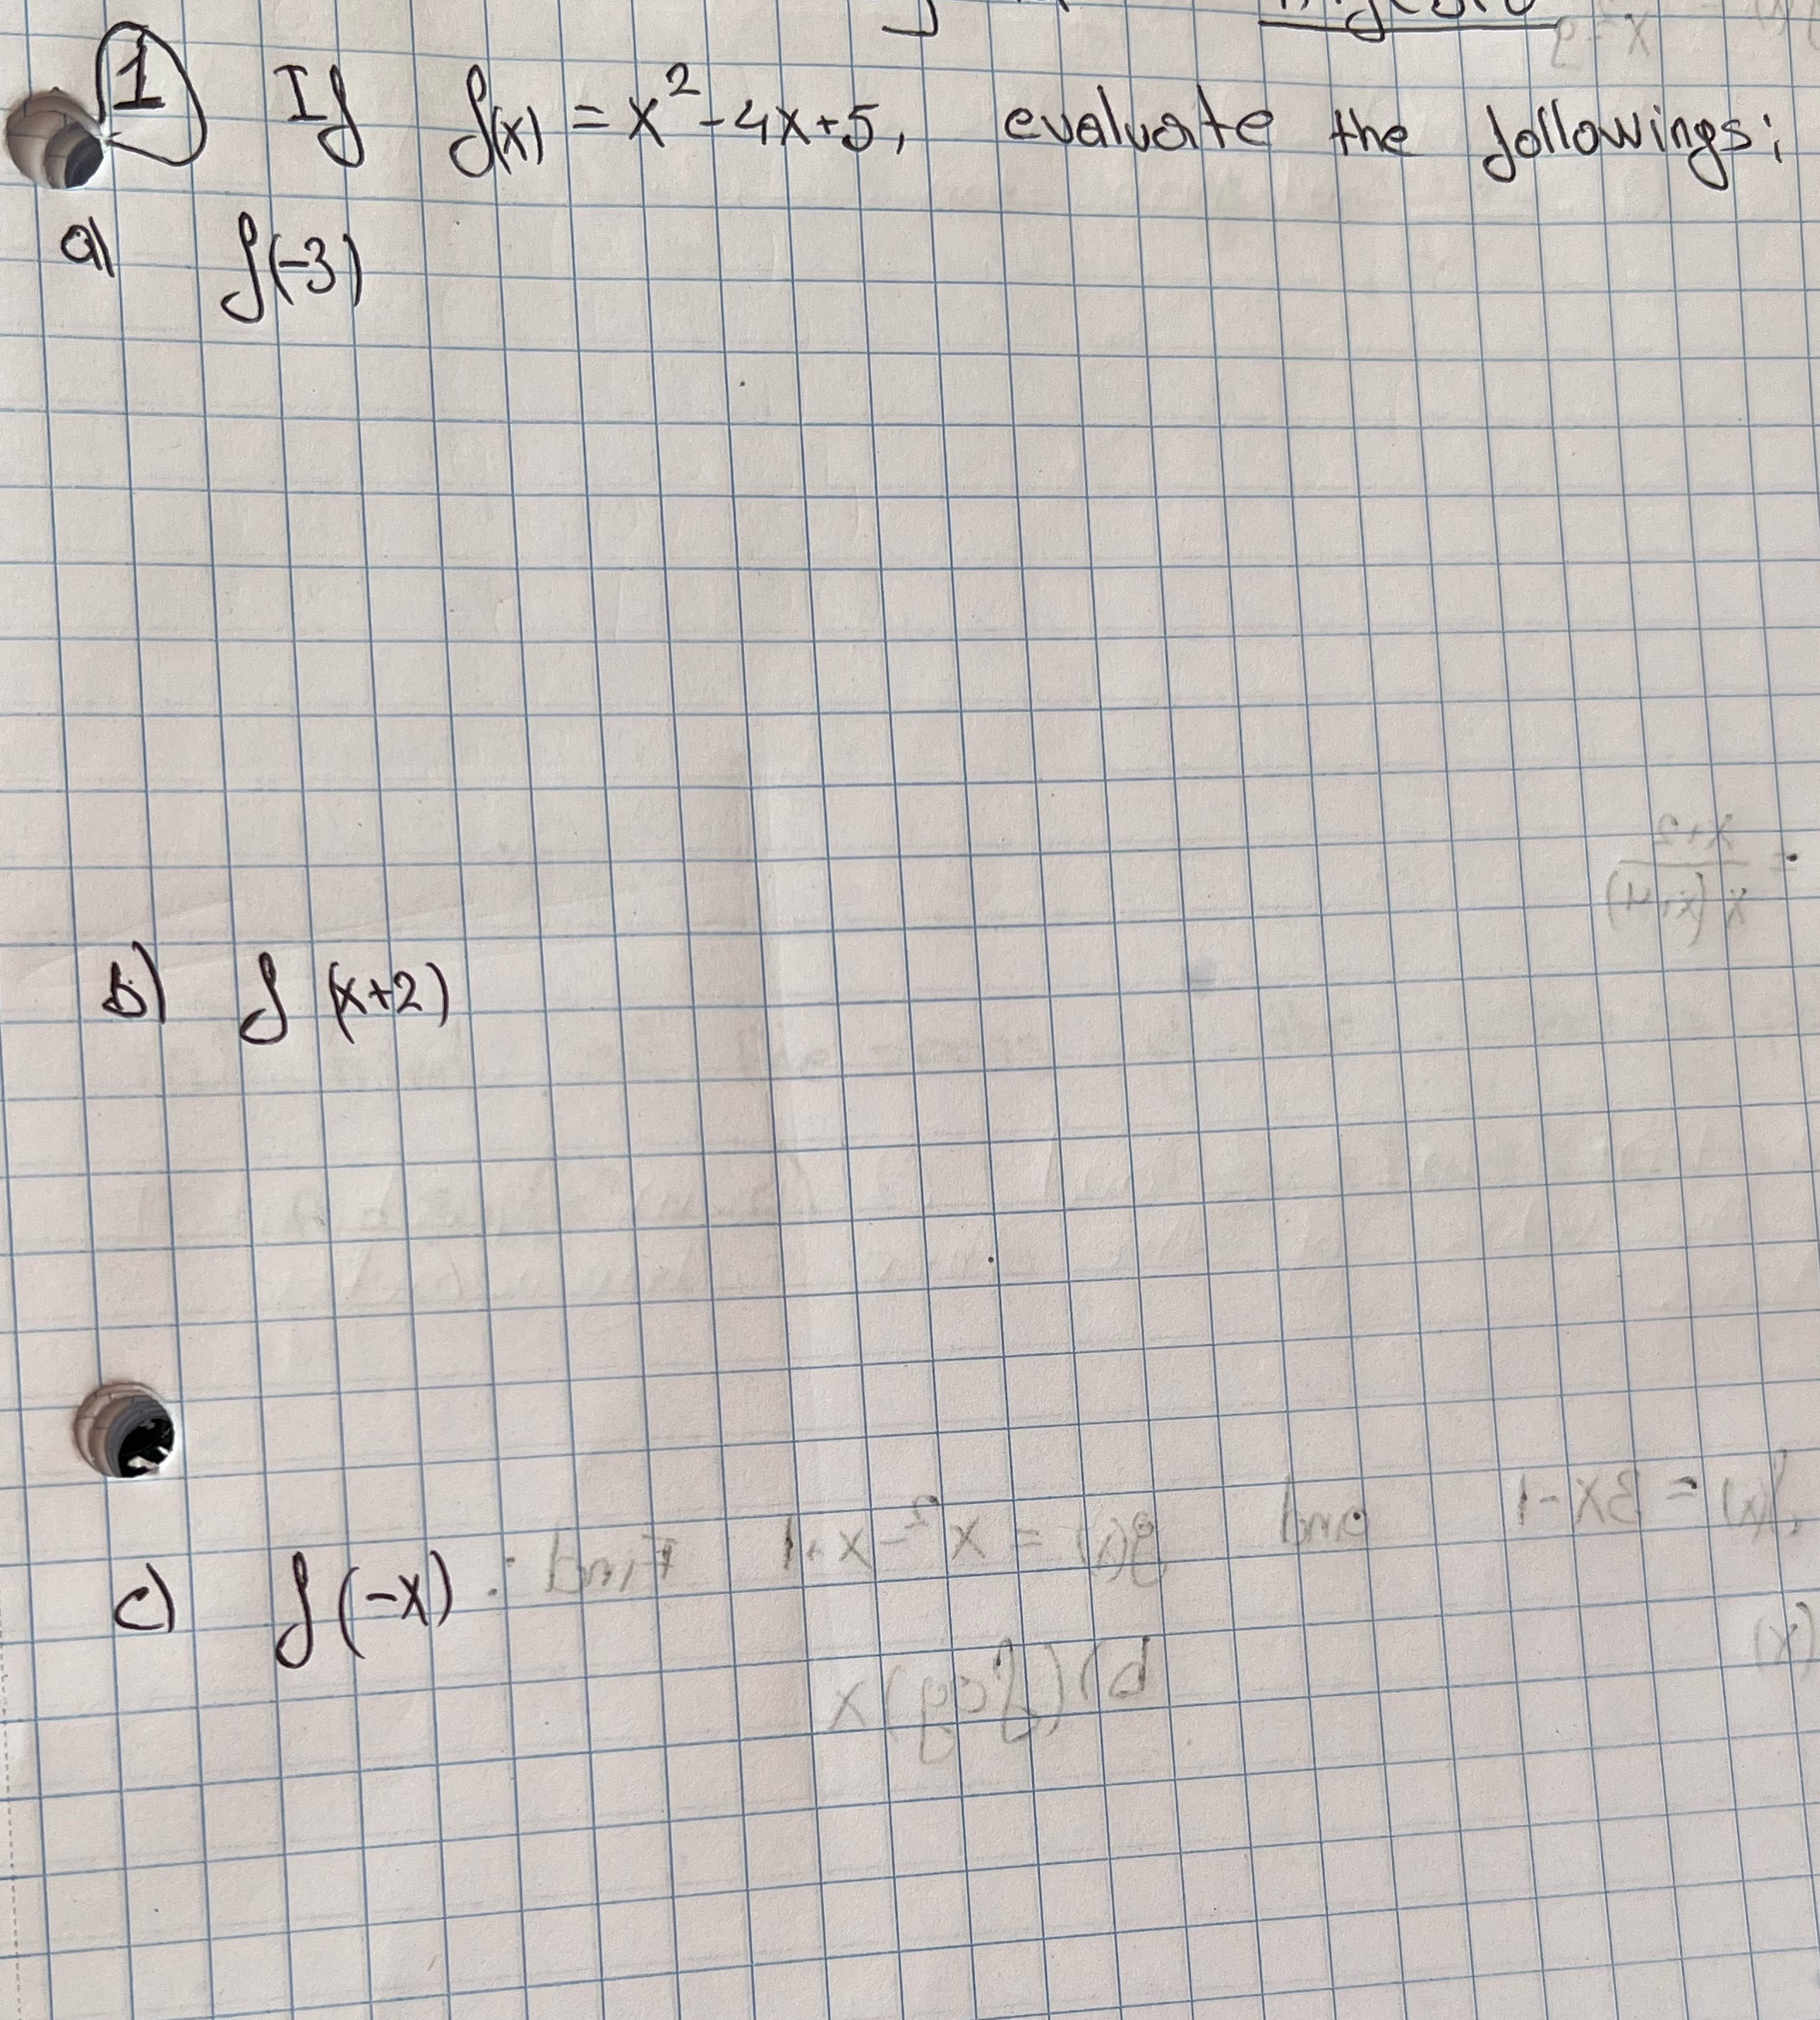 1 If f(x) = x² - 4x + 5, evaluate the followings;
a) f(-3)
b) f (x+2)
c) f (-x)